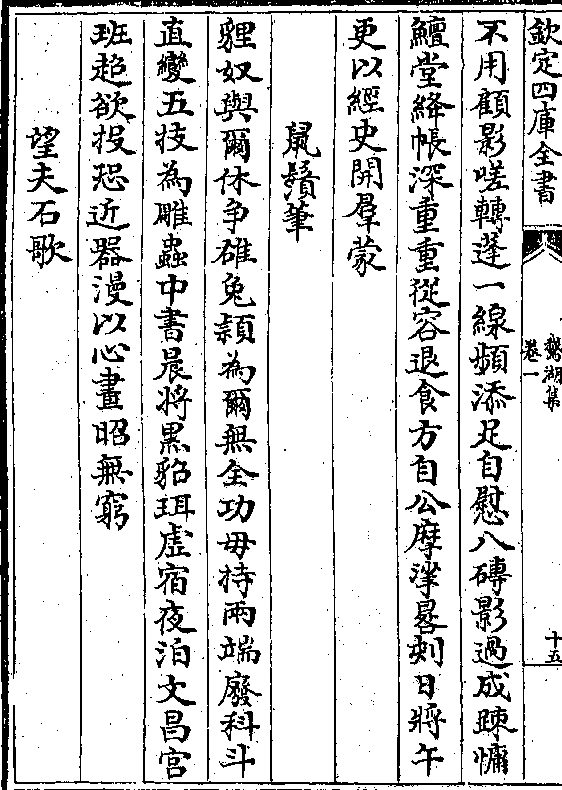 欽定四庫全書
鵝湖集
卷一
十五
不用顧影嗟轉蓬一線頻添足自慰八磚影過成踈慵
鱣堂絳帳深重重從容退食方自公摩挲晷刻日將午
更以經史開羣蒙
鼠鬚筆
貍奴與爾休争雄兔頴為爾無全功毋持兩端廢科斗
直變五技為雕蟲中書晨將黒貂珥虚宿夜泊文昌宫
班超欲投恐近器漫以心畫昭無窮
望夫石歌